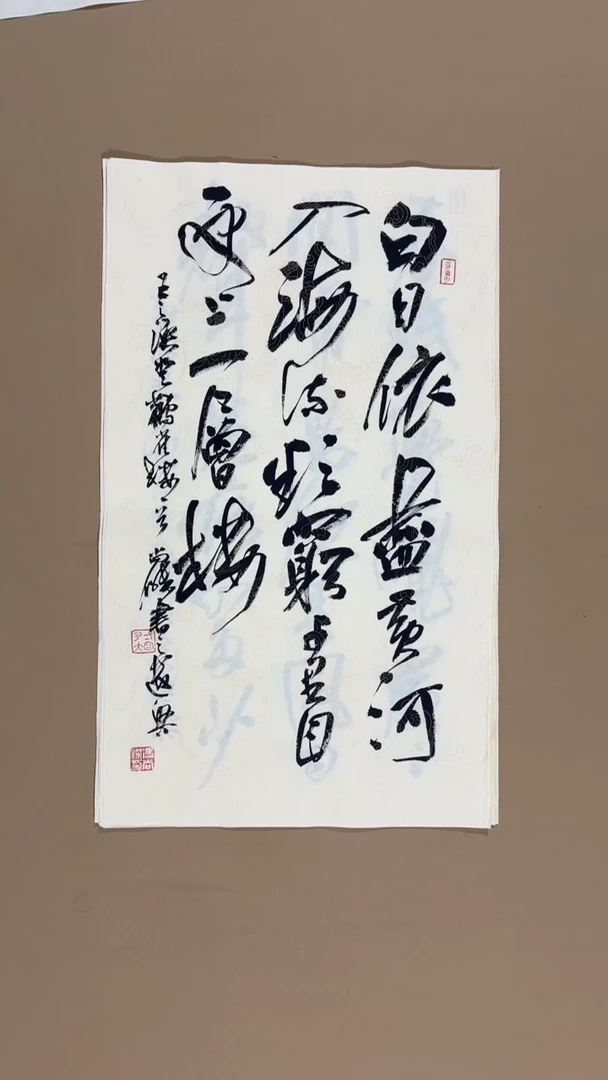 白日依山盡黄河
入海流欲窮千里目
更上一層樓
王之渙登鶴雀樓 書之遣興